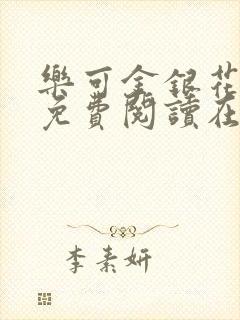 樂可金銀花
免費閱讀在
李素妍